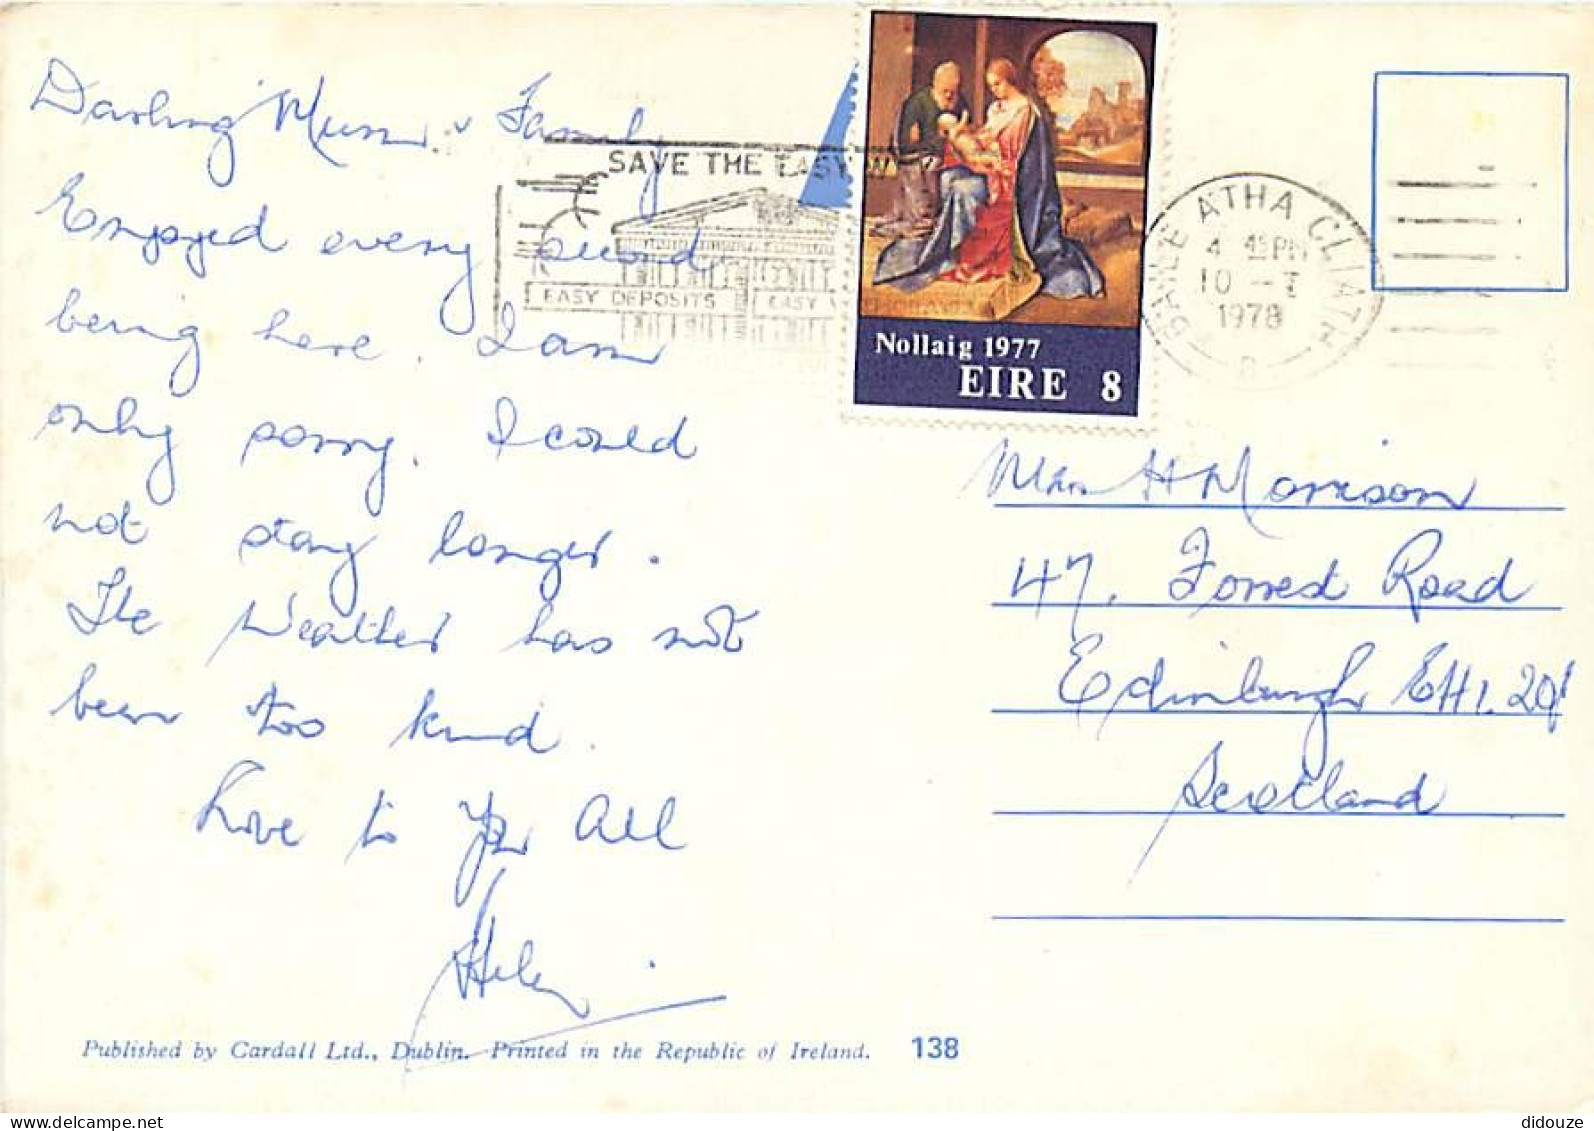 Darling Mum & Family
Enjoyed every second
being here. I am
only sorry. I could
not stay longer.
The Weather has not
been too kind.
Love to You All
Helen.
SAVE THE EASY WAY
EASY DEPOSITS
EASY WITHDRAWALS
Nollaig 1977
EIRE 8
BAILE ÁTHA CLIATH
4 45PM
10
1978
Mrs H Morrison
47, Forrest Road
Edinburgh EH1. 2QP
Scotland
Published by Cardall Ltd., Dublin. Printed in the Republic of Ireland. 138
delcampe.net
didouze